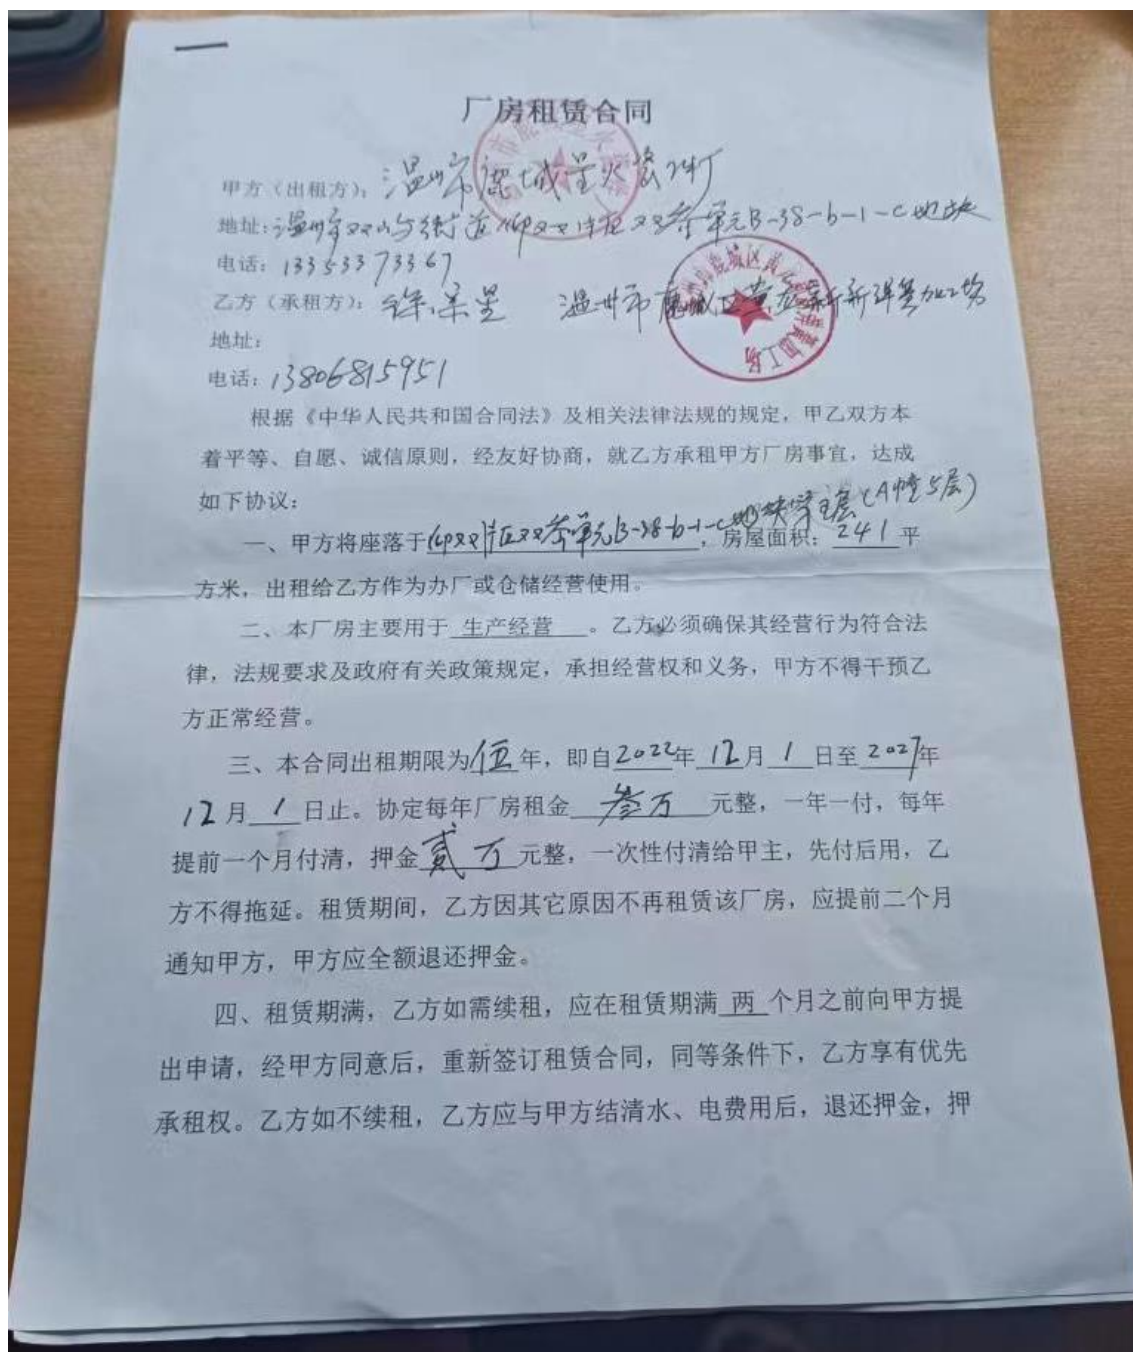 厂房租赁合同
甲方（出租方）：温州市鹿城星火套件厂
地址：温州市双屿街道仰双片区双岙单元B-38-b-1-c地块
电话：13353373367
乙方（承租方）：星 温州市鹿城区黄新新洋加工场
地址：
电话：13806815951
根据《中华人民共和国合同法》及相关法律法规的规定，甲乙双方本
着平等、自愿、诚信原则，经友好协商，就乙方承租甲方厂房事宜，达成
如下协议：
一、甲方将座落于仰双片区双岙单元B-38-b-1-c地块层（A幢5层），房屋面积：241平
方米，出租给乙方作为办厂或仓储经营使用。
二、本厂房主要用于 生产经营 。乙方必须确保其经营行为符合法
律，法规要求及政府有关政策规定，承担经营权和义务，甲方不得干预乙
方正常经营。
三、本合同出租期限为伍年，即自2022年12月1日至2027年
12月1日止。协定每年厂房租金 叁万 元整，一年一付，每年
提前一个月付清，押金贰万元整，一次性付清给甲主，先付后用，乙
方不得拖延。租赁期间，乙方因其它原因不再租赁该厂房，应提前二个月
通知甲方，甲方应全额退还押金。
四、租赁期满，乙方如需续租，应在租赁期满 两 个月之前向甲方提
出申请，经甲方同意后，重新签订租赁合同，同等条件下，乙方享有优先
承租权。乙方如不续租，乙方应与甲方结清水、电费用后，退还押金，押